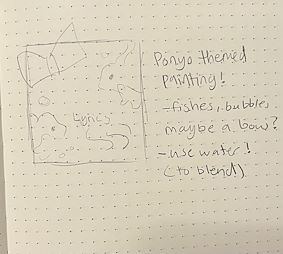 Lyrics
Ponyo themed
painting!
-fishes, bubbles,
maybe a bow?
-use water!
(to blend)